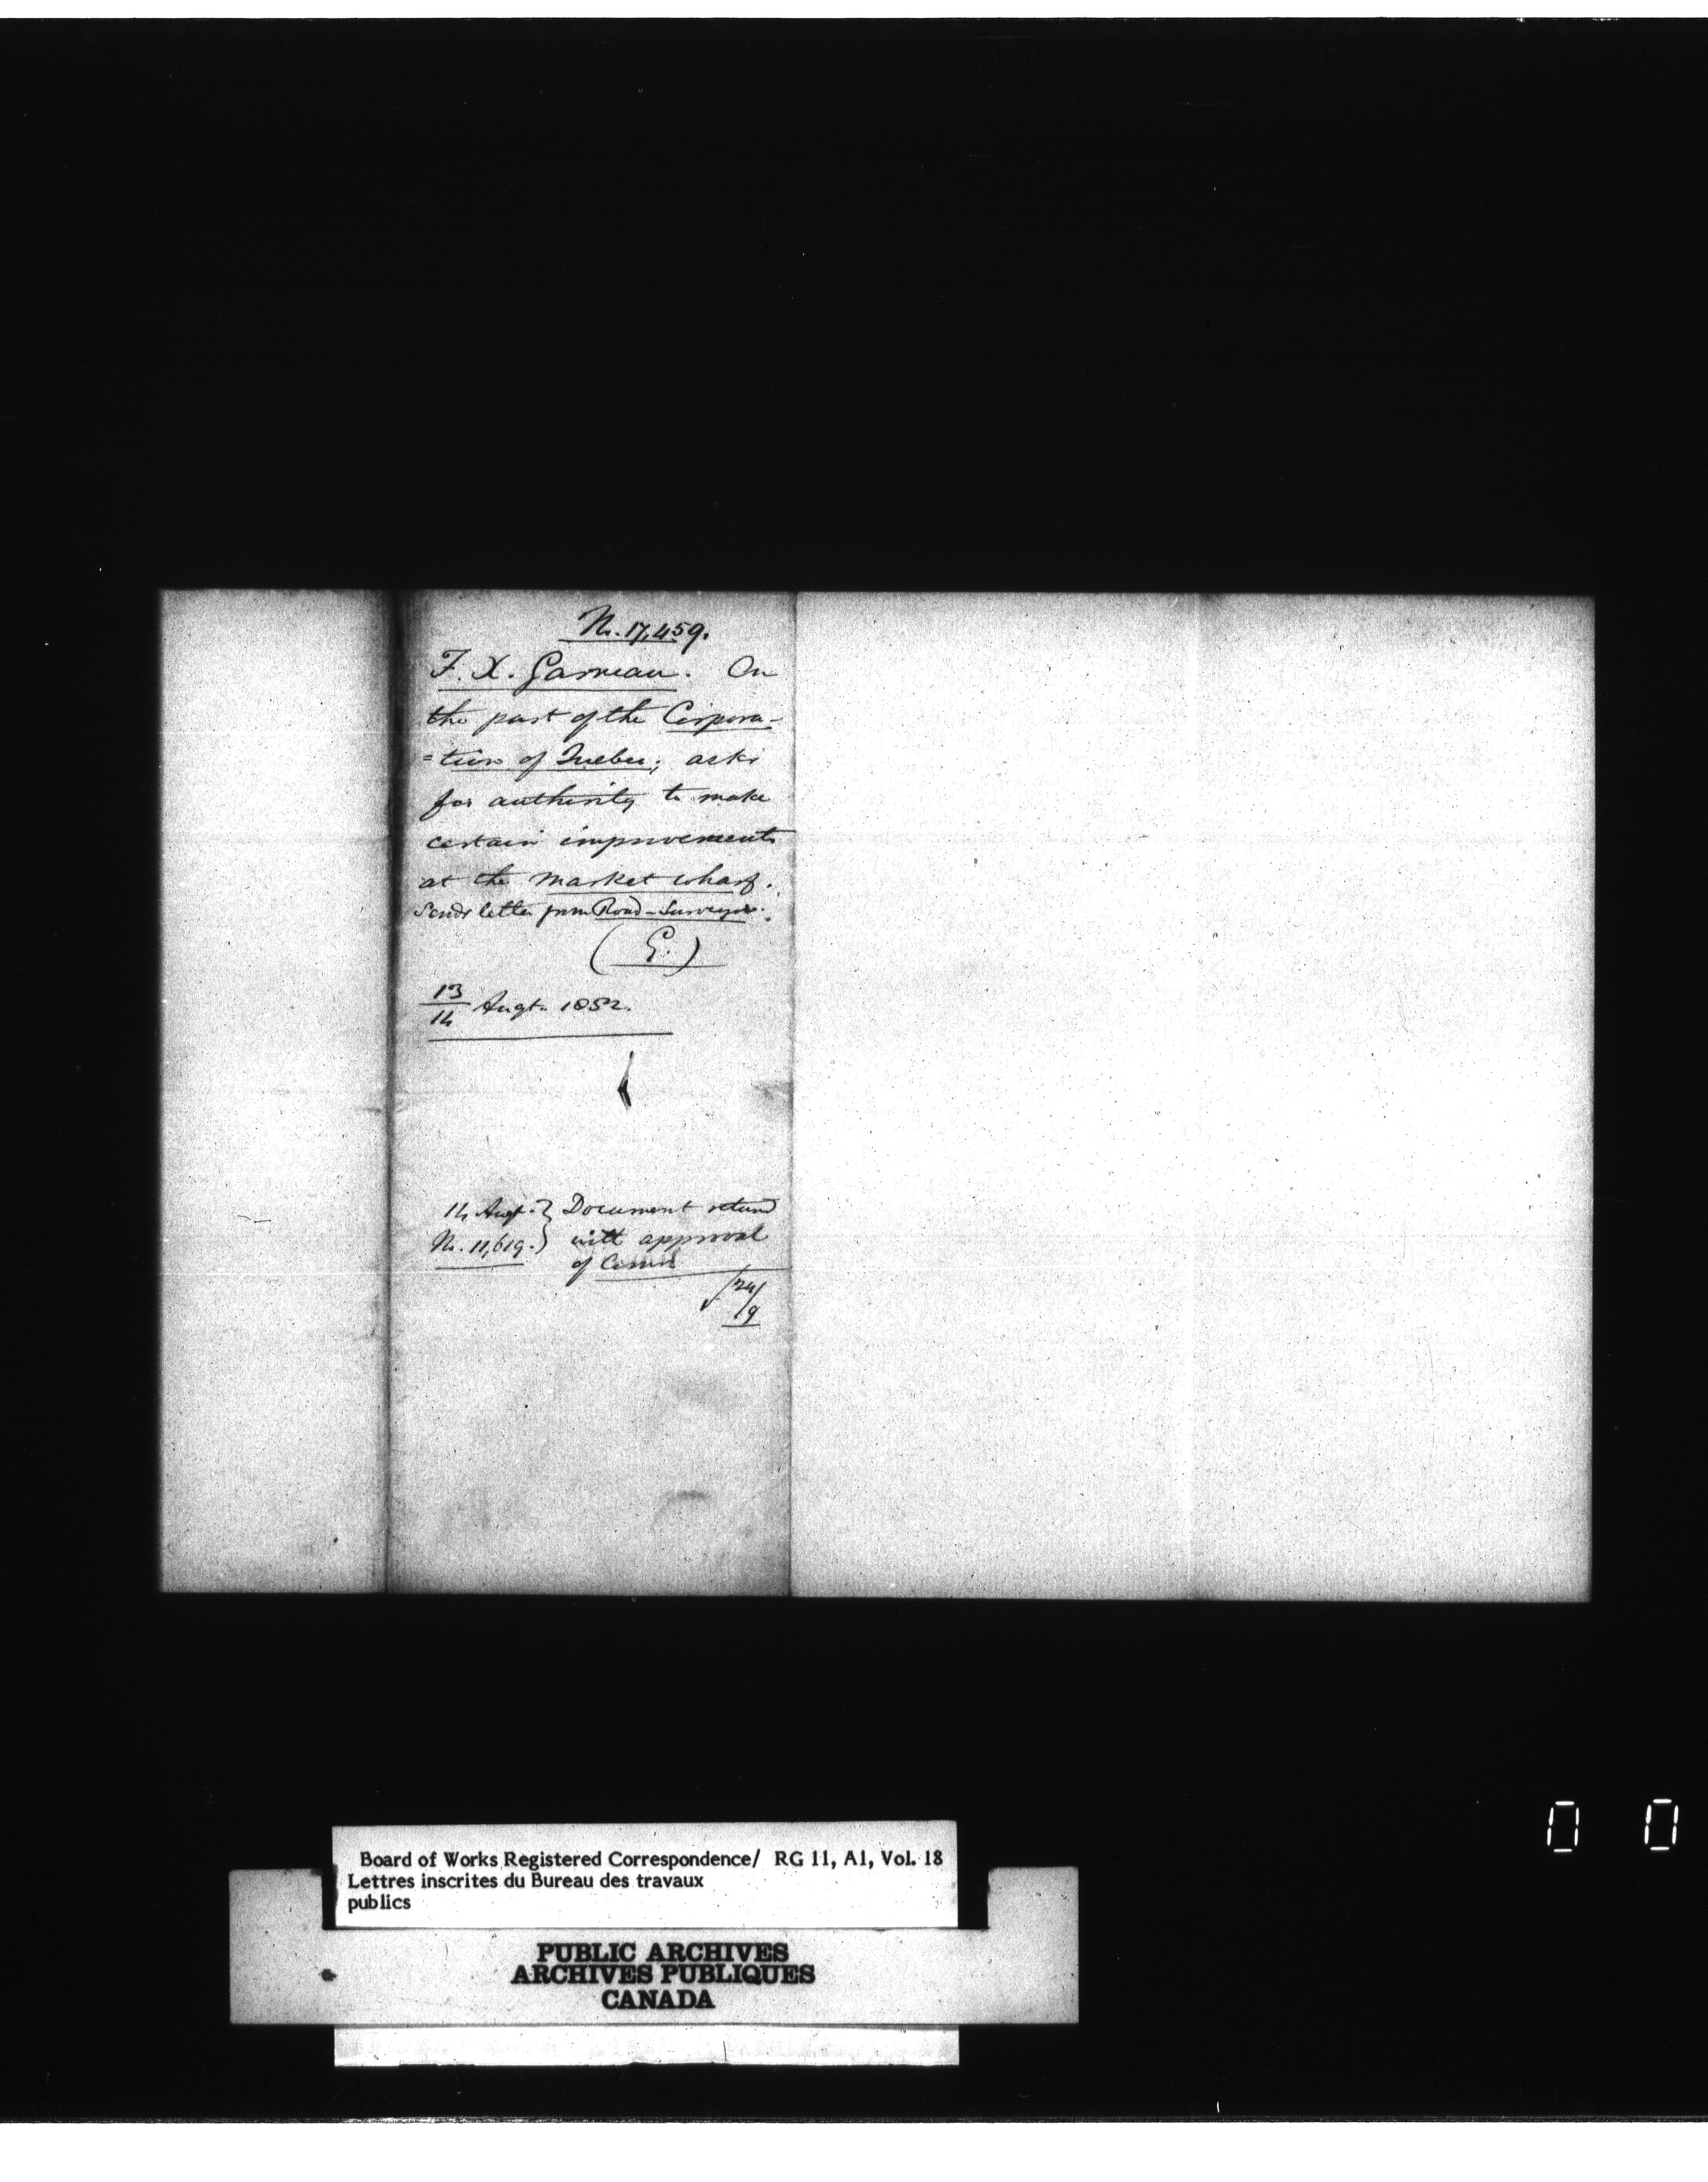 No. 17,459.
F. X. Garneau. On
the part of the Corpora-
=tion of Quebec; asks
for authority to make
certain improvements
at the Market wharf.
Sends letter from Road-Surveyor.
(E.)
13/14 Augt. 1852.
14 Augt. } Document returd
No. 11,619. } with approval
of Comrs
24/9
Board of Works Registered Correspondence/ RG 11, A1, Vol. 18
Lettres inscrites du Bureau des travaux
publics
PUBLIC ARCHIVES
ARCHIVES PUBLIQUES
CANADA
0 0